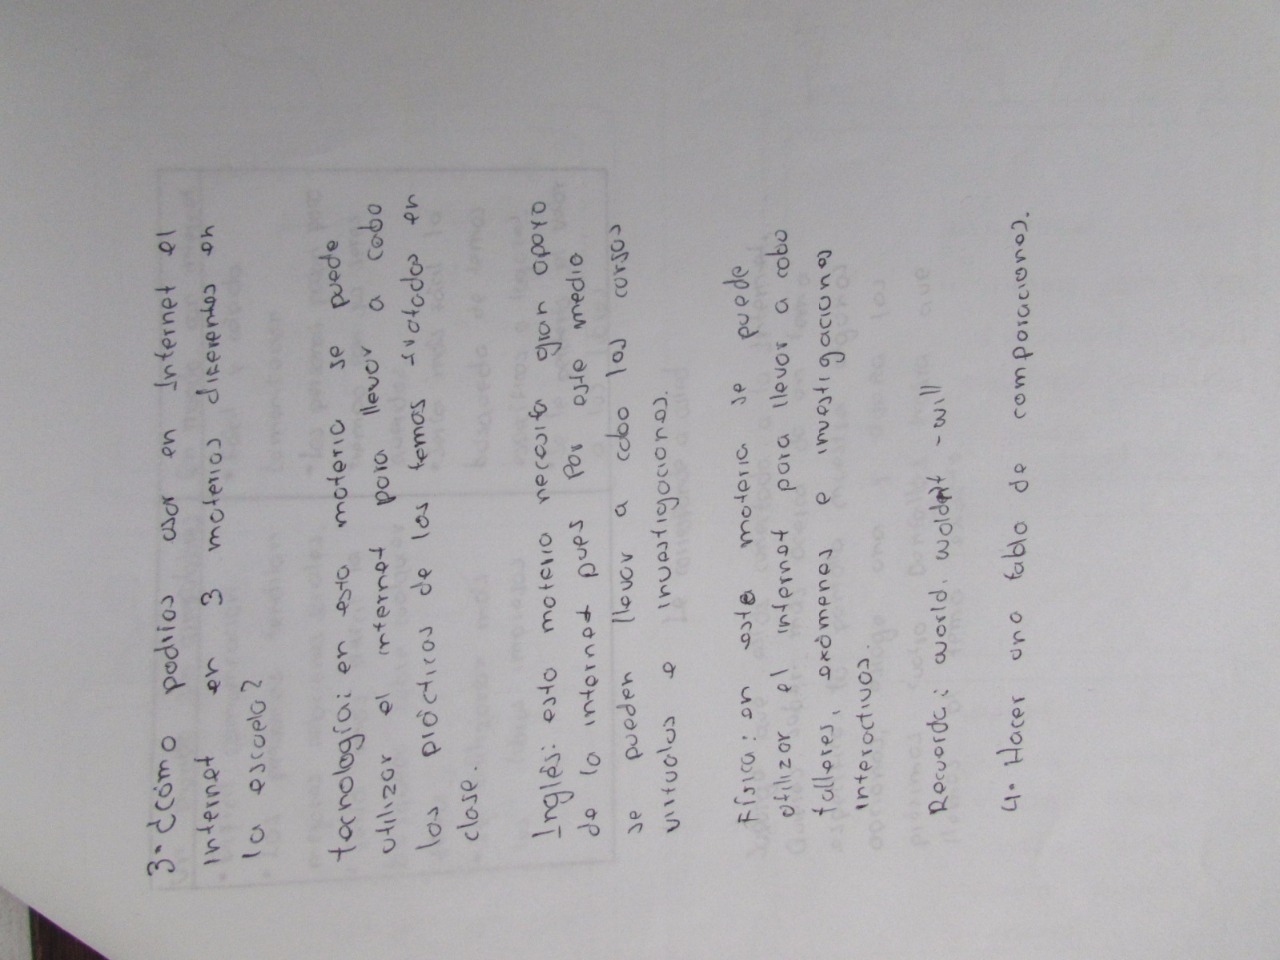 3. ¿Cómo podrias usar en Internet el
internet en 3 materias diferentes en
la escuela?
tecnología: en esta materia se puede
utilizar el internet para llevar a cabo
las prácticas de los temas tratados en
clase.
Inglés: esta materia necesita gran apoyo
de la internet pues por este medio
se pueden llevar a cabo los cursos
virtuales e investigaciones.
Física: en esta materia se puede
utilizar el internet para llevar a cabo
talleres, exámenes e investigaciones
interactivas.
Recuerda: world. woldnt - will
4. Hacer una tabla de comparaciones.